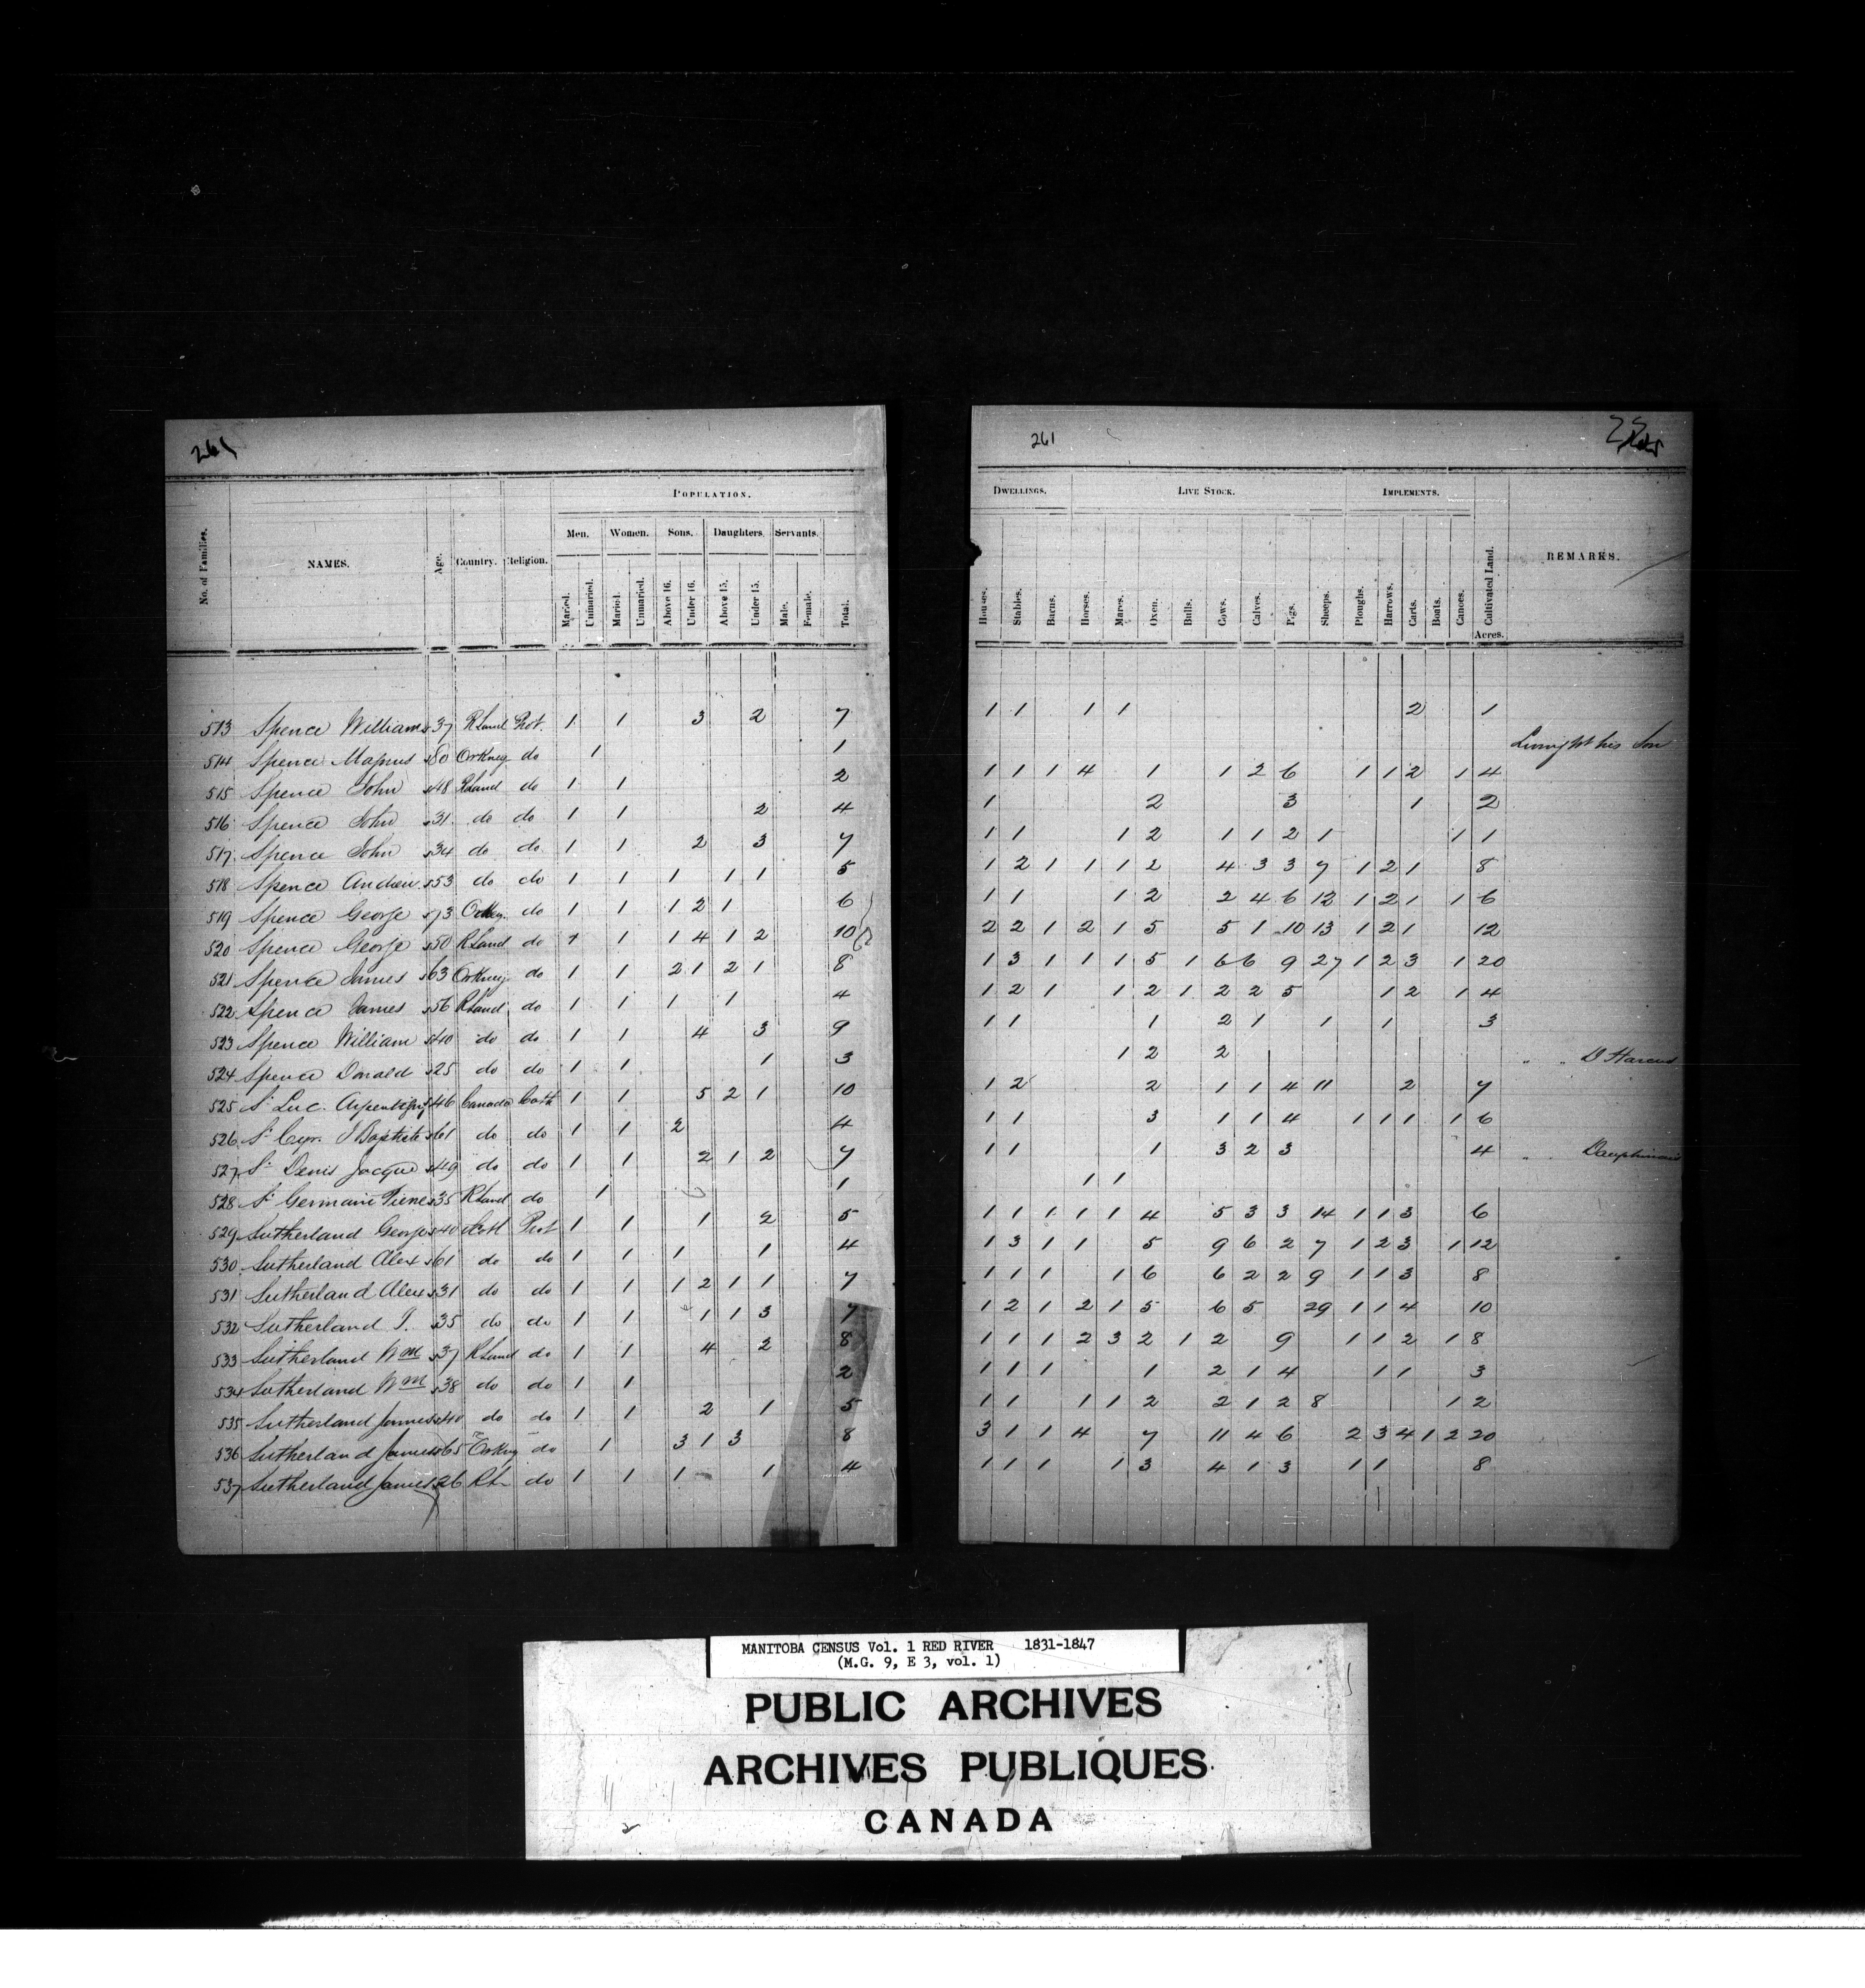 261
261
25
POPULATION.
DWELLINGS. LIVE STOCK. IMPLEMENTS.
Men. Women. Sons. Daughters. Servants.
No. of Families. NAMES. Age. Country. Religion. Maried. Unmaried. Maried. Unmaried. Above 16. Under 16. Above 15. Under 15. Male. Female. Total.
Houses. Stables. Barns. Horses. Mares. Oxen. Bulls. Cows. Calves. Pigs. Sheeps. Ploughs. Harrows. Carts. Boats. Canoes. Cultivated Land. REMARKS.
Acres.
513 Spence William 37 RLand Prot. 1 1 3 2 7
514 Spence Magnus 80 Orkney do 1 1
515 Spence John 48 RLand do 1 1 2
516 Spence John 31 do do 1 1 2 4
517 Spence John 34 do do 1 1 2 3 7
518 Spence Andrew 53 do do 1 1 1 1 1 5
519 Spence George 73 Orkney do 1 1 1 2 1 6
520 Spence George 50 RLand do 1 1 1 4 1 2 10
521 Spence James 63 Orkney do 1 1 2 1 2 1 8
522 Spence James 56 RLand do 1 1 1 1 4
523 Spence William 40 do do 1 1 4 3 9
524 Spence Donald 25 do do 1 1 1 3
525 St Luc. 46 Canada Cath 1 1 5 2 1 10
526 St Cyr. J Baptiste 61 do do 1 1 2 4
527 St Denis Jacque 49 do do 1 1 2 1 2 7
528 St Germain Pierre 35 RLand do 1 1
529 Sutherland George 40 Scotl Prot 1 1 1 2 5
530 Sutherland Alex 61 do do 1 1 1 1 4
531 Sutherland Alex 31 do do 1 1 1 2 1 1 7
532 Sutherland 35 do do 1 1 1 1 3 7
533 Sutherland Wm 37 RLand do 1 1 4 2 8
534 Sutherland Wm 38 do do 1 1 2
535 Sutherland James 40 do do 1 1 2 1 5
536 Sutherland James 65 Orkney do 1 3 1 3 8
537 Sutherland James 26 RL do 1 1 1 1 4
1 1 1 1 2 1
his Son
1 1 1 4 1 1 2 6 1 1 2 1 4
1 2 3 1 2
1 1 1 2 1 1 2 1 1 1
1 2 1 1 1 2 4 3 3 7 1 2 1 8
1 1 1 2 2 4 6 12 1 2 1 1 6
2 2 1 2 1 5 5 1 10 13 1 2 1 12
1 3 1 1 1 5 1 6 6 9 27 1 2 3 1 20
1 2 1 1 2 1 2 2 5 1 2 1 4
1 1 1 2 1 1 1 3
1 2 2 " " D Harcus
1 2 2 1 1 4 11 2 7
1 1 3 1 1 4 1 1 1 1 6
1 1 1 3 2 3 4 " Dauphinais
1 1
1 1 1 1 1 4 5 3 3 14 1 1 3 6
1 3 1 1 5 9 6 2 7 1 2 3 1 12
1 1 1 1 6 6 2 2 9 1 1 3 8
1 2 1 2 1 5 6 5 29 1 1 4 10
1 1 1 2 3 2 1 2 9 1 1 2 1 8
1 1 1 1 2 1 4 1 1 3
1 1 1 1 2 2 1 2 8 1 2
3 1 1 4 7 11 4 6 2 3 4 1 2 20
1 1 1 1 3 4 1 3 1 1 8
MANITOBA CENSUS Vol. 1 RED RIVER 1831-1847
(M.G. 9, E 3, vol. 1)
PUBLIC ARCHIVES
ARCHIVES PUBLIQUES
CANADA